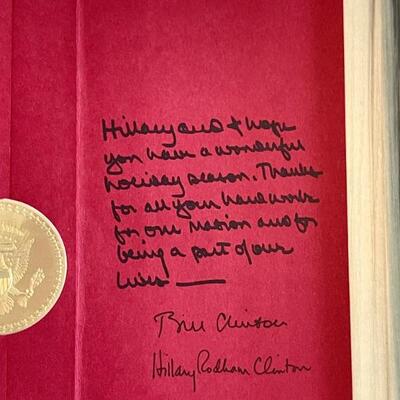 Hillary and I hope
you have a wonderful
holiday season. Thanks
for all your hard work
for our nation and for
being a part of our
lives —
Bill Clinton
Hillary Rodham Clinton